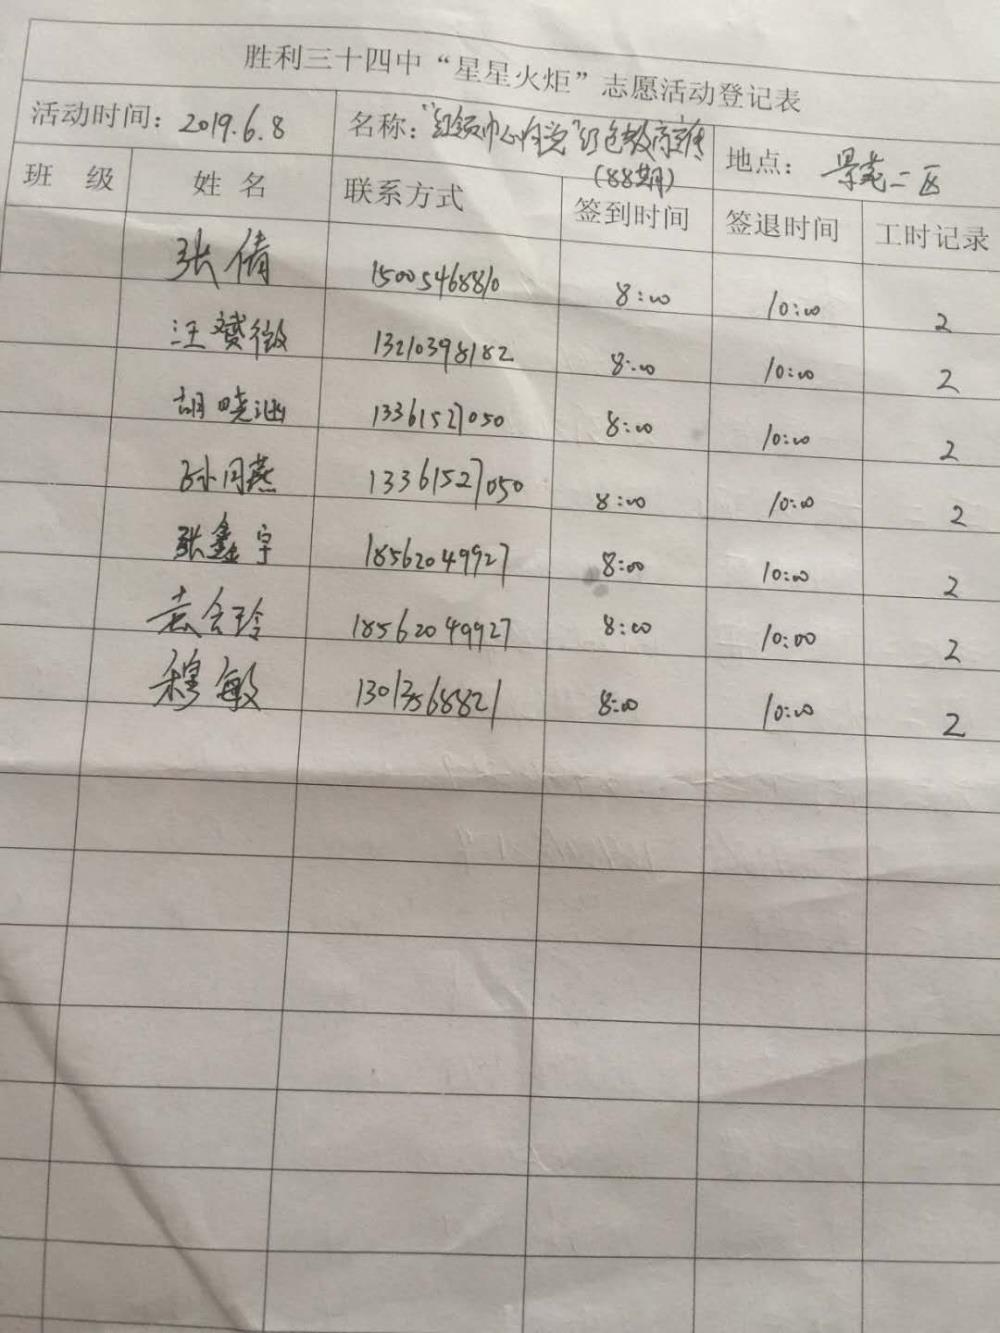 胜利三十四中“星星火炬”志愿活动登记表
活动时间：2019.6.8 名称：“红领巾心向党”红色教育宣传（88期） 地点：景苑二区
班级 姓名 联系方式 签到时间 签退时间 工时记录
张倩 15005468810 8:00 10:00 2
汪赟微 13210398182 8:00 10:00 2
胡晓涵 13361527050 8:00 10:00 2
孙月燕 13361527050 8:00 10:00 2
张鑫宇 18562049927 8:00 10:00 2
袁会玲 18562049927 8:00 10:00 2
穆敏 8:00 10:00 2